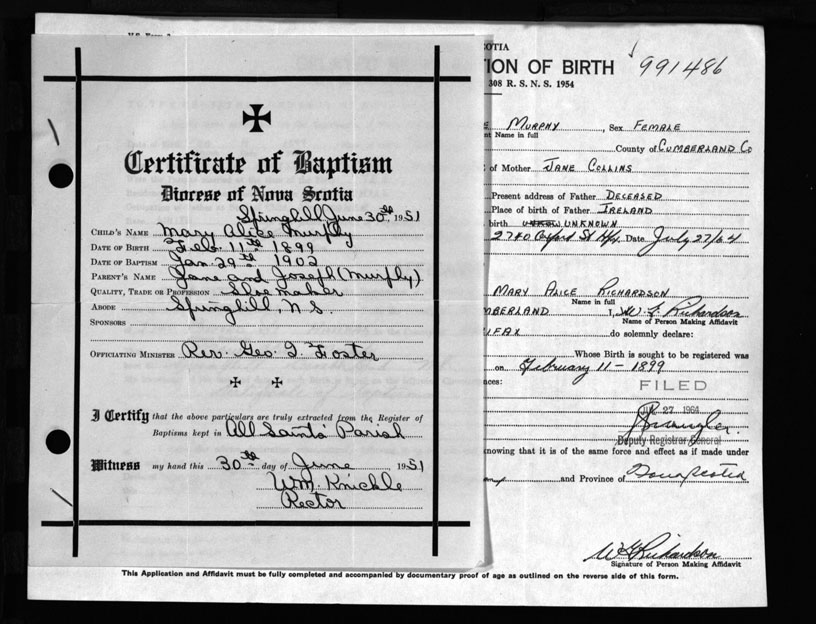 Certificate of Baptism
Diocese of Nova Scotia
Springhill June 30th, 1951
CHILD'S NAME Mary Alice Murphy
DATE OF BIRTH Feb. 11th 1899
DATE OF BAPTISM Jan. 29th 1902
PARENT'S NAME Jane and Joseph (Murphy)
QUALITY, TRADE OR PROFESSION Shoe maker
ABODE Springhill, N.S.
SPONSORS
OFFICIATING MINISTER Rev. Geo. I. Foster
I Certify that the above particulars are truly extracted from the Register of
Baptisms kept in All Saints' Parish
Witness my hand this 30th day of June 1951
Wm. Knickle
Rector
COTIA
ION OF BIRTH 991486
308 R. S. N. S. 1954
MURPHY, Sex FEMALE
nt Name in full
County of CUMBERLAND CO
of Mother JANE COLLINS
Present address of Father DECEASED
Place of birth of Father IRELAND
birth UNKNOWN
2740 Oxford St Date July 27/64
MARY ALICE RICHARDSON
Name in full
MBERLAND I, W. Richardson
Name of Person Making Affidavit
IFAX do solemnly declare:
Whose Birth is sought to be registered was
on February 11 - 1899
nces:
FILED
27 1964
Deputy Registrar General
nowing that it is of the same force and effect as if made under
and Province of Nova Scotia
Richardson
Signature of Person Making Affidavit
This Application and Affidavit must be fully completed and accompanied by documentary proof of age as outlined on the reverse side of this form.